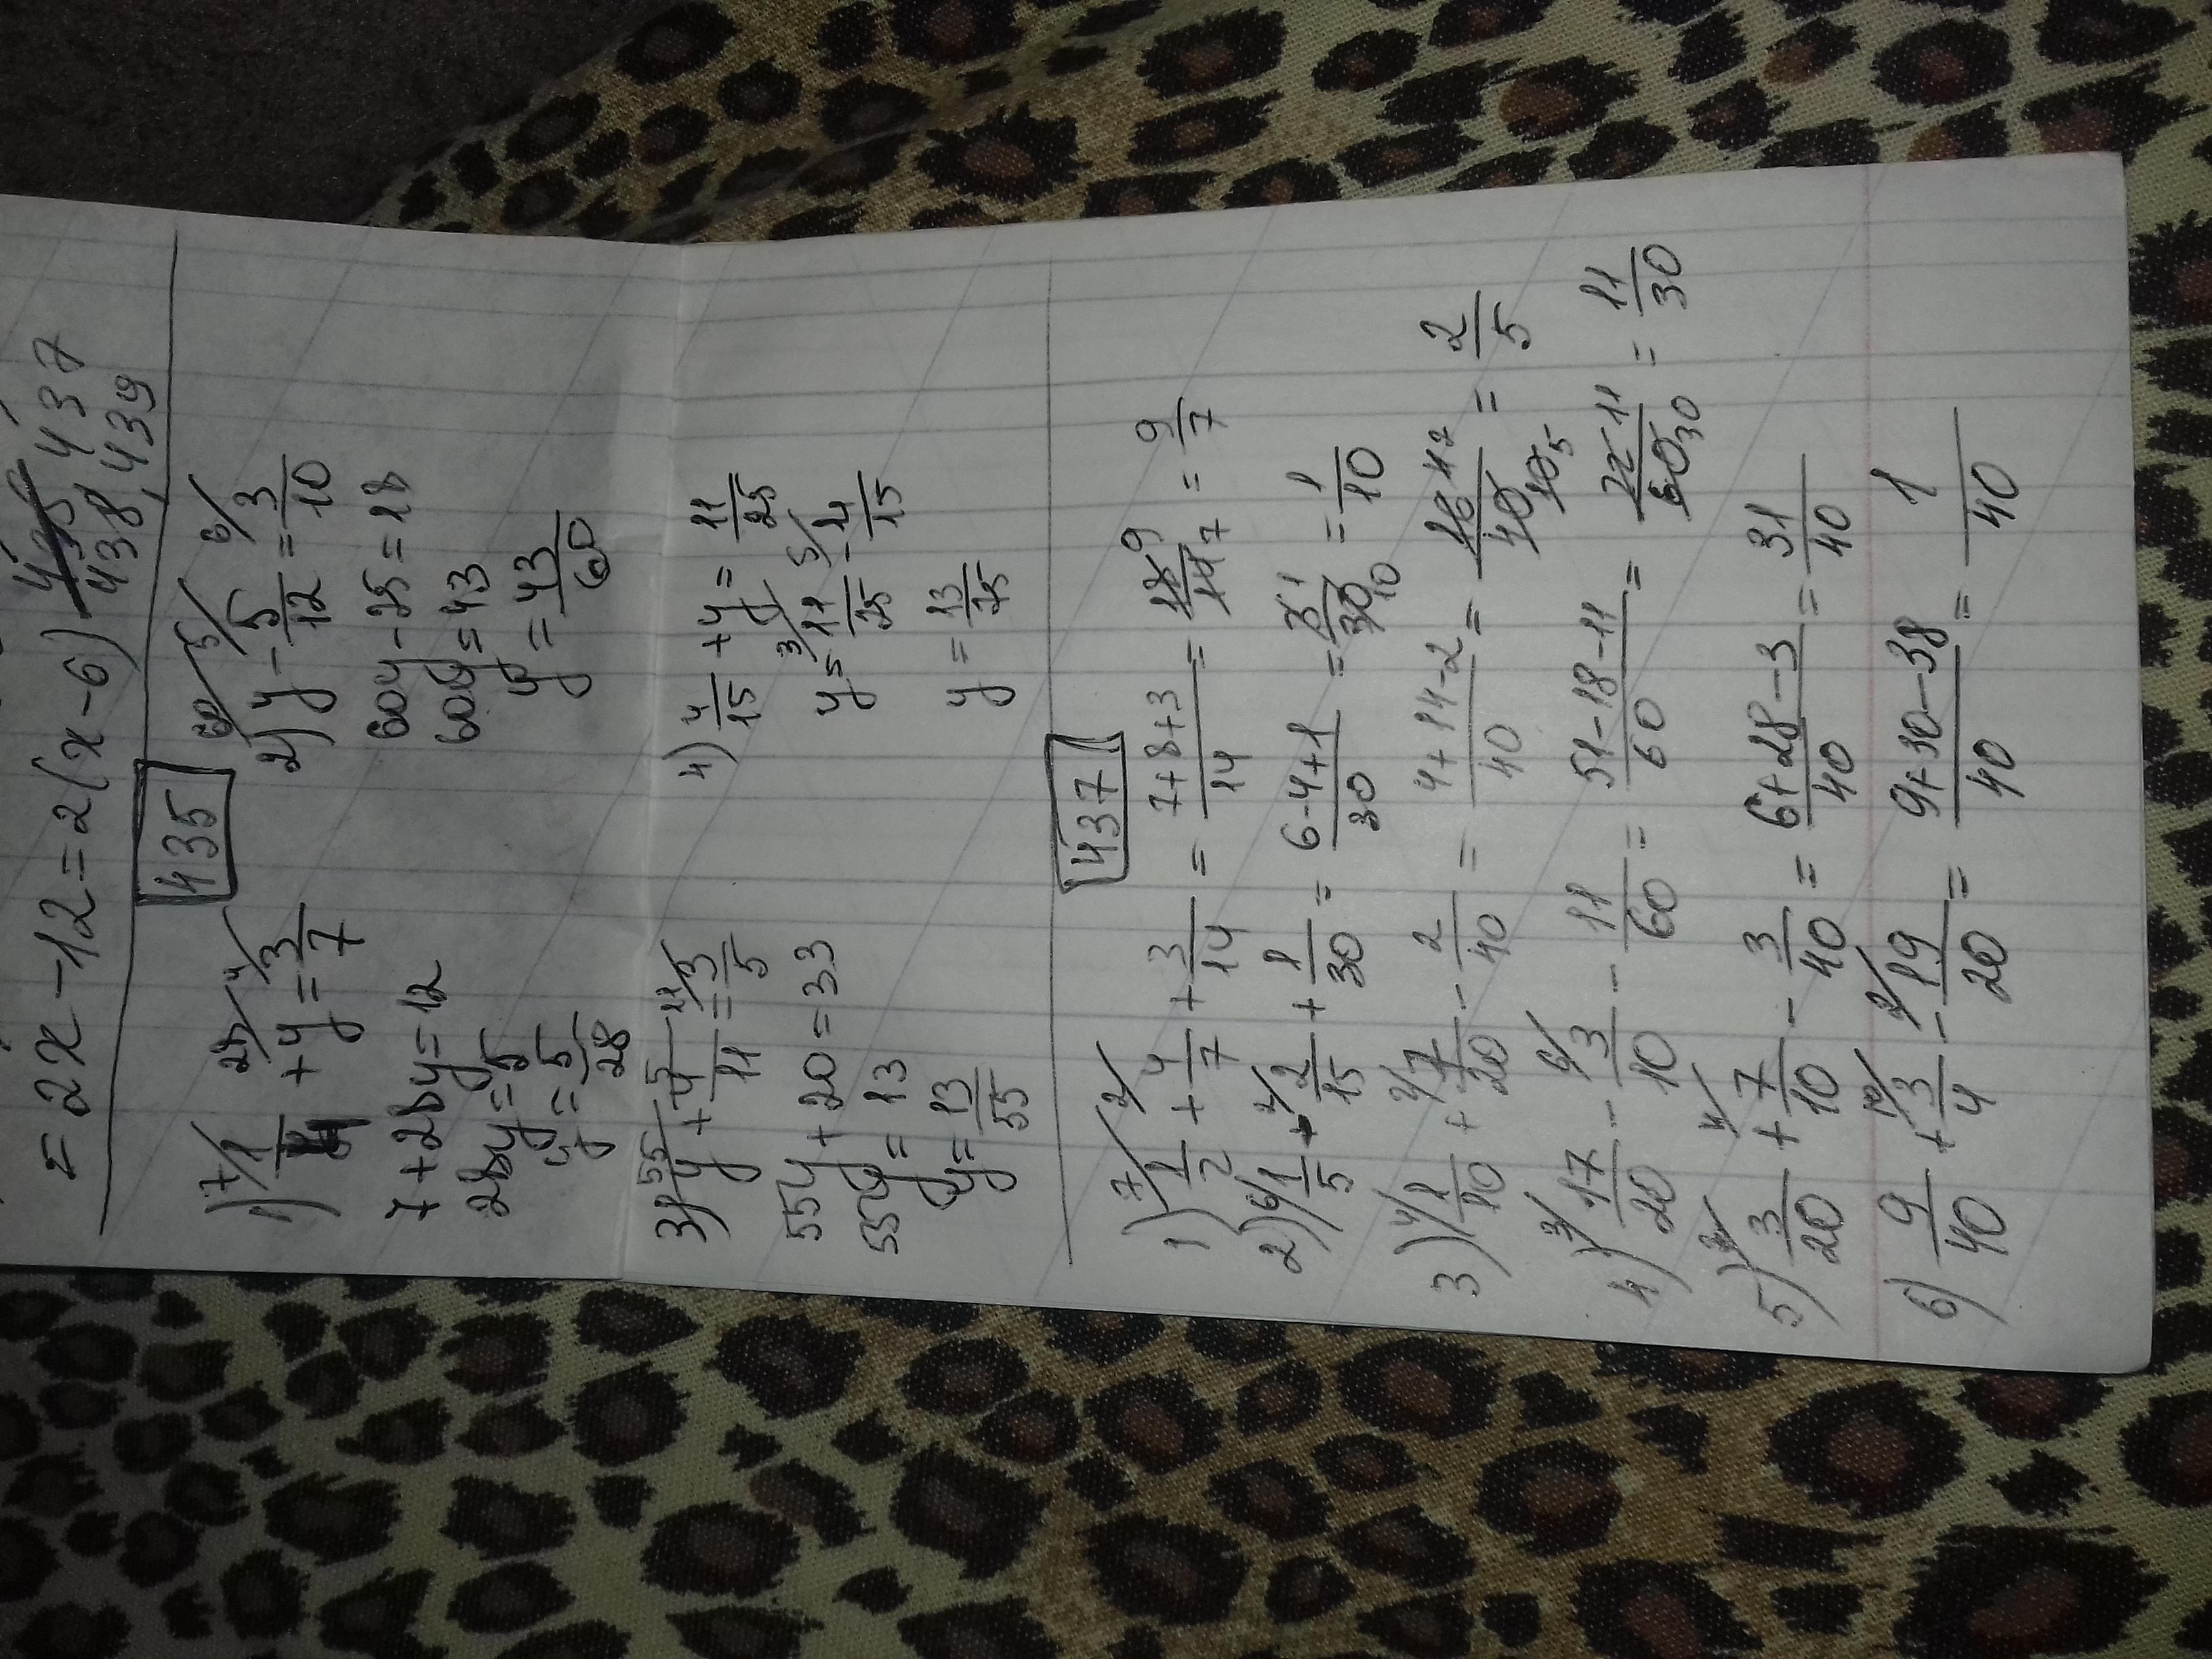 = 2x - 12 = 2(x - 6) 435 437
438, 439
435
1) 7/ 1/4 28/ + y = 4/ 3/7
7 + 28y = 12
28y = 5
y = 5/28
2) 60/ y - 5/ 5/12 = 6/ 3/10
60y - 25 = 18
60y = 43
y = 43/60
3) 55/ y + 5/ 4/11 = 11/ 3/5
55y + 20 = 33
55y = 13
y = 13/55
4) 4/15 + y = 11/25
y = 3/ 11/25 - 5/ 4/15
y = 13/75
437
1) 7/ 1/2 + 2/ 4/7 + 3/14 = 7+8+3/14 = 18 9/14 7 = 9/7
2) 6/ 1/5 + 2/ 2/15 + 1/30 = 6-4+1/30 = 3 1/30 10 = 1/10
3) 4/ 1/10 + 2/ 7/20 - 2/40 = 4+14-2/40 = 16/40 10 5 = 2/5
4) 3/ 17/20 - 6/ 3/10 - 11/60 = 51-18-11/60 = 22 11/60 30 = 11/30
5) 2/ 3/20 + 4/ 7/10 - 3/40 = 6+28-3/40 = 31/40
6) 9/40 + 10/ 3/4 - 2/ 19/20 = 9+30-38/40 = 1/40